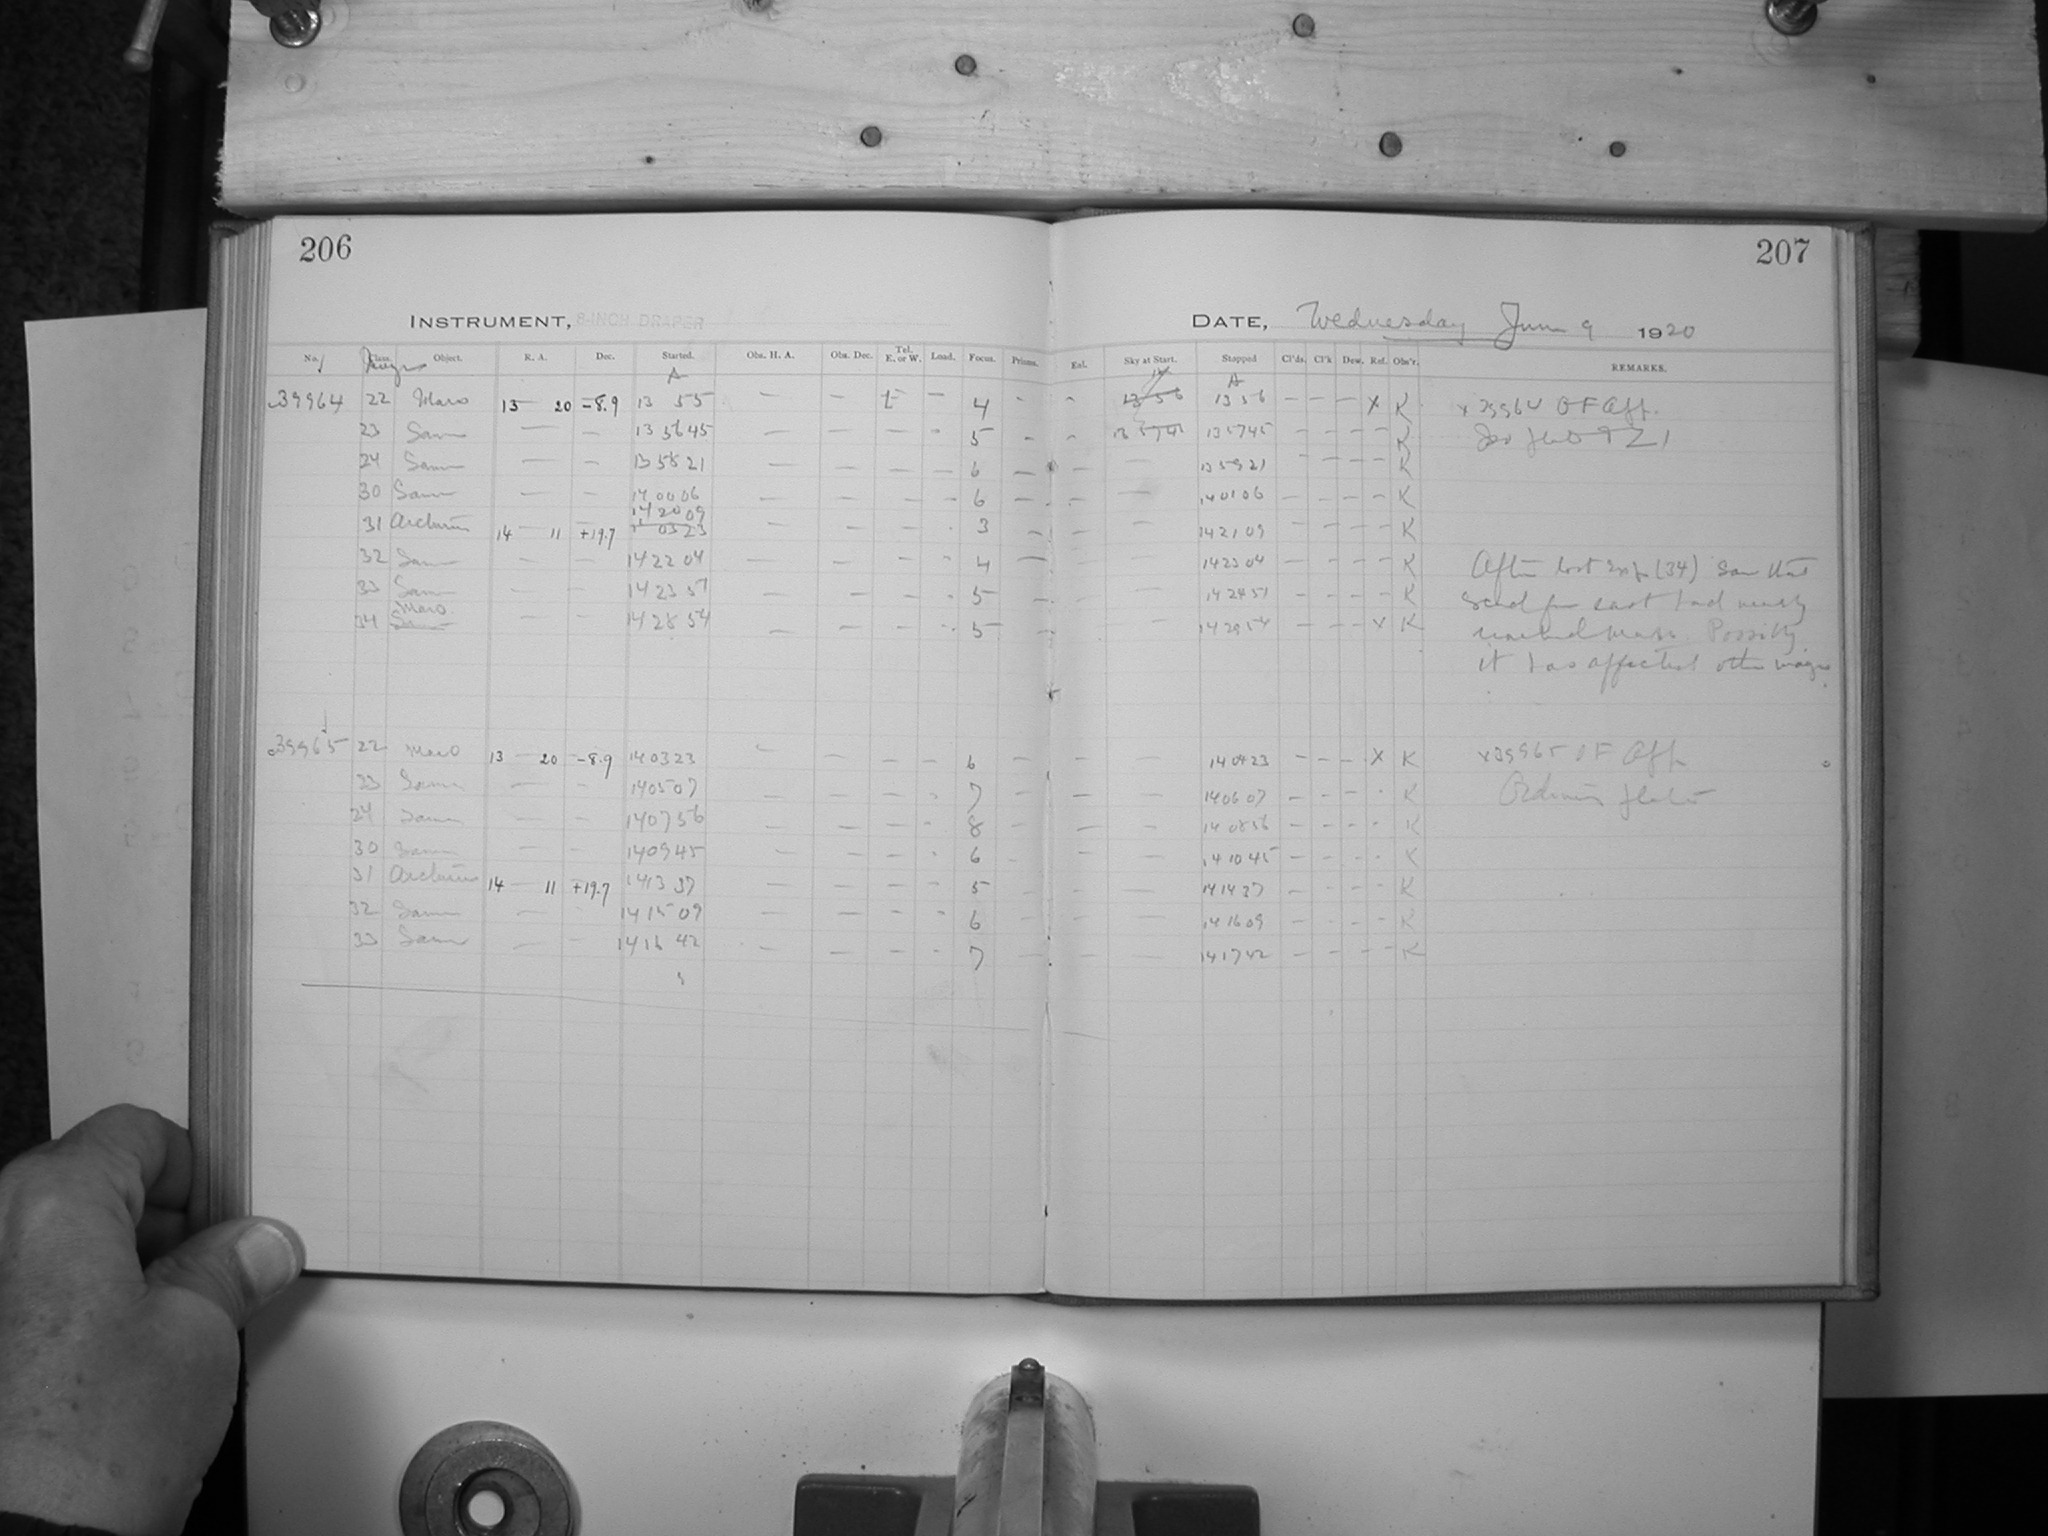 206
207
INSTRUMENT, 8-INCH DRAPER
DATE, Wednesday June 9 1920
No. Class. Object. R. A. Dec. Started. Obs. H. A. Obs. Dec. Tel. E. or W. Load. Focus. Prisms. Enl. Sky at Start. Stopped Cl'ds. Cl'k Dew. Ref. Obs'r. REMARKS.
A A
39964 22 Mars 13 — 20 –8.9 13 55 — — E — 4 - - 13 56 13 56 - - - X K x 39964 OF Aff.
23 Same — — 13 56 45 — — — - 5 - - 13 57 45 - - - - K
24 Same — — 13 58 21 — — — - 6 — - — 13 59 21 - - - - K
30 Same — — 14 00 06 — — — - 6 — - — 14 01 06 - - - - K
14 20 09
31 Arcturus 14 — 11 +19.7 03 23 — — — - 3 — — 14 21 09 - - - - K
32 Same — — 14 22 04 — — - - 4 — — 14 23 04 - - - - K After last exp (34) Saw that
33 Same — — 14 23 51 — — - - 5 — 14 24 51 - - - - K
Mars
34 Same 14 28 54 — — - - 5 — — 14 29 54 - - - x K
Possibly
it has affected other images
39965 22 Mars 13 — 20 –8.9 14 03 23 — — - - 6 — — — 14 04 23 - - - X K x 39965 OF Aff
23 Same — — 14 05 07 — — - - 7 — — — 14 06 07 - - - - K Ordinary plate
24 Same — — 14 07 56 — — - - 8 - — — 14 08 56 - - - - K
30 Same — — 14 09 45 — — - - 6 - — — 14 10 45 - - - - K
31 Arcturus 14 — 11 +19.7 14 13 37 — — - - 5 — — — 14 14 37 - - - - K
32 Same — — 14 15 09 — — - - 6 — — — 14 16 09 - - - - K
33 Same — — 14 16 42 — — - - 7 — — — 14 17 42 - - - - K